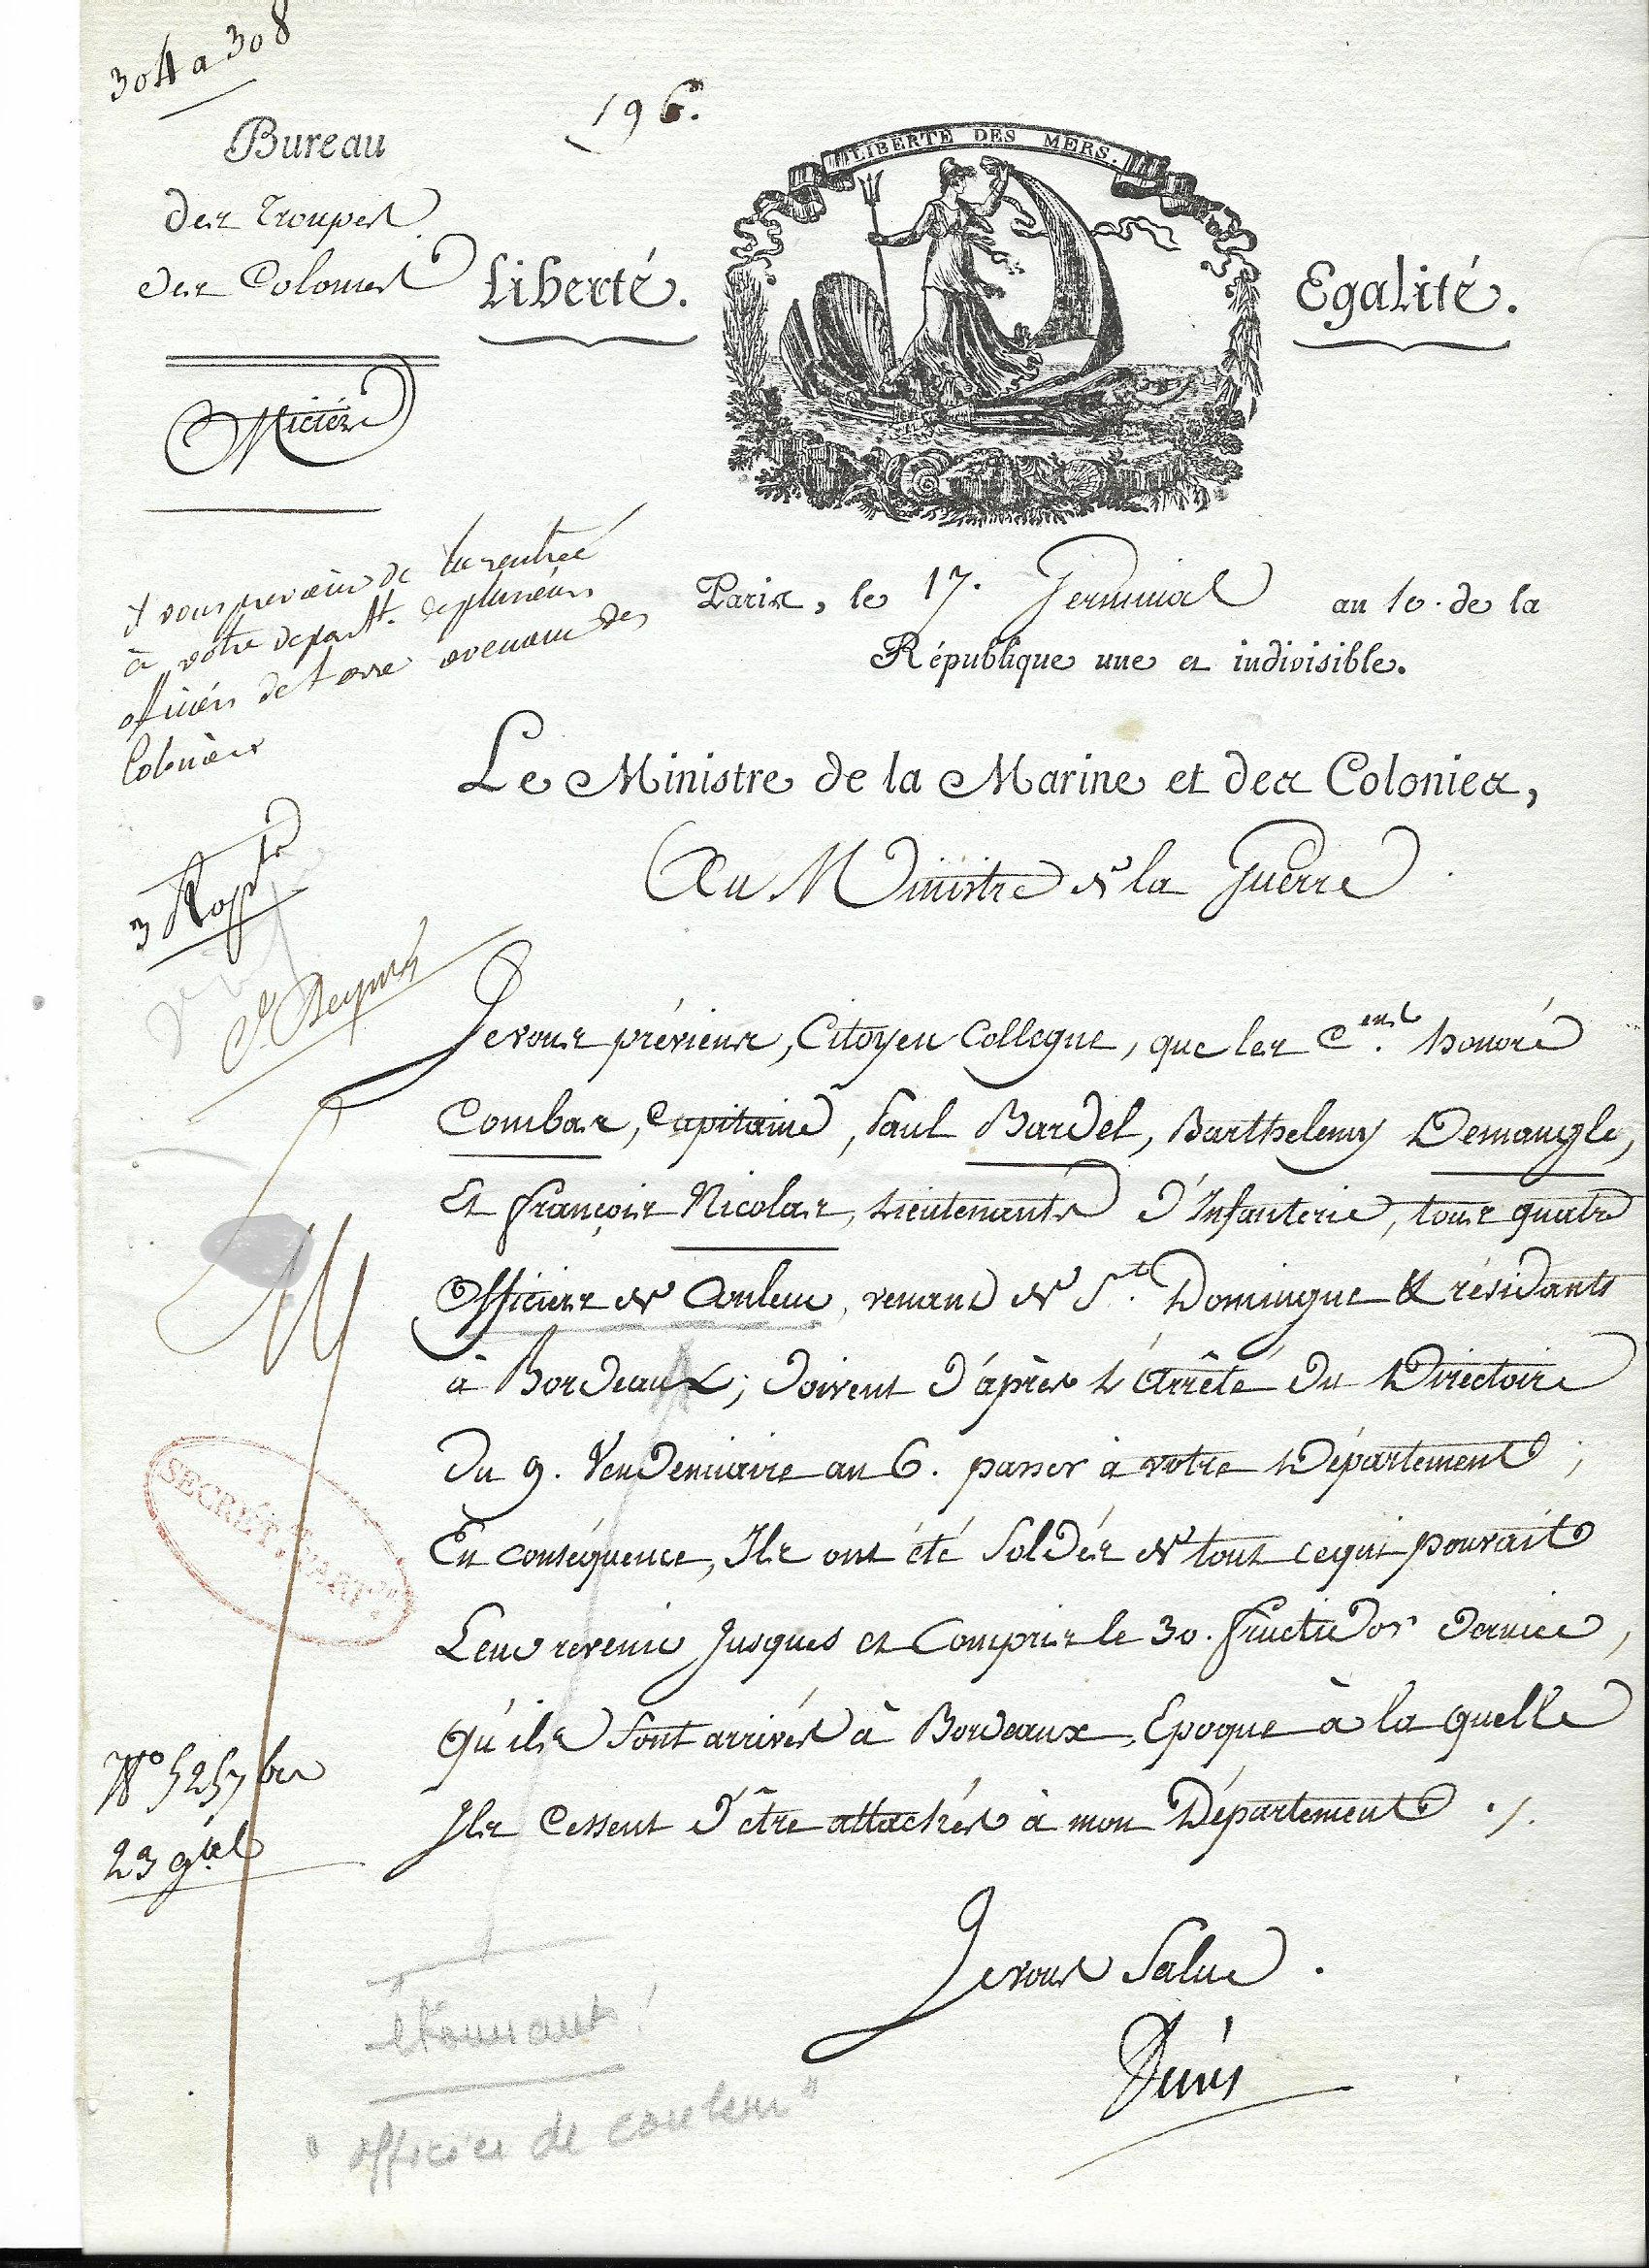 304 a 308
196.
Bureau
des Troupes
des Colonies
LIBERTÉ DES MERS.
Liberté.
Egalité.
Officiers
Paris, le 17. Germinal an 10. de la
République une et indivisible.
& vous prévient de la rentrée
à votre départt. de plusieurs
officiers de terre venant des
Colonies
Le Ministre de la Marine et des Colonies,
Au Ministre de la Guerre
3
Je vous préviens, Citoyen Collegue, que les C.ens honoré
Combas, Capitaine, Paul Bardel, Barthelemy Demangle,
Et françois Nicolas, Lieutenants d'Infanterie, tous quatre
Officiers de Couleur, venant de St. Domingue & résidants
à Bordeaux; doivent d'après L'Arrêté du Directoire
du 9. Vendemiaire an 6. passer à votre Département;
En conséquence, Ils ont été Soldés de tout cequi pouvait
Leur revenir Jusques et Compris le 30. fructidor dernier,
qu'ils sont arrivés à Bordeaux, Epoque à la quelle
Ils Cessent d'être attachés à mon Département ./.
SECRÉT.
No 5257 bis
23 gal
Je vous Salue.
étonnant!
"officier de couleur"